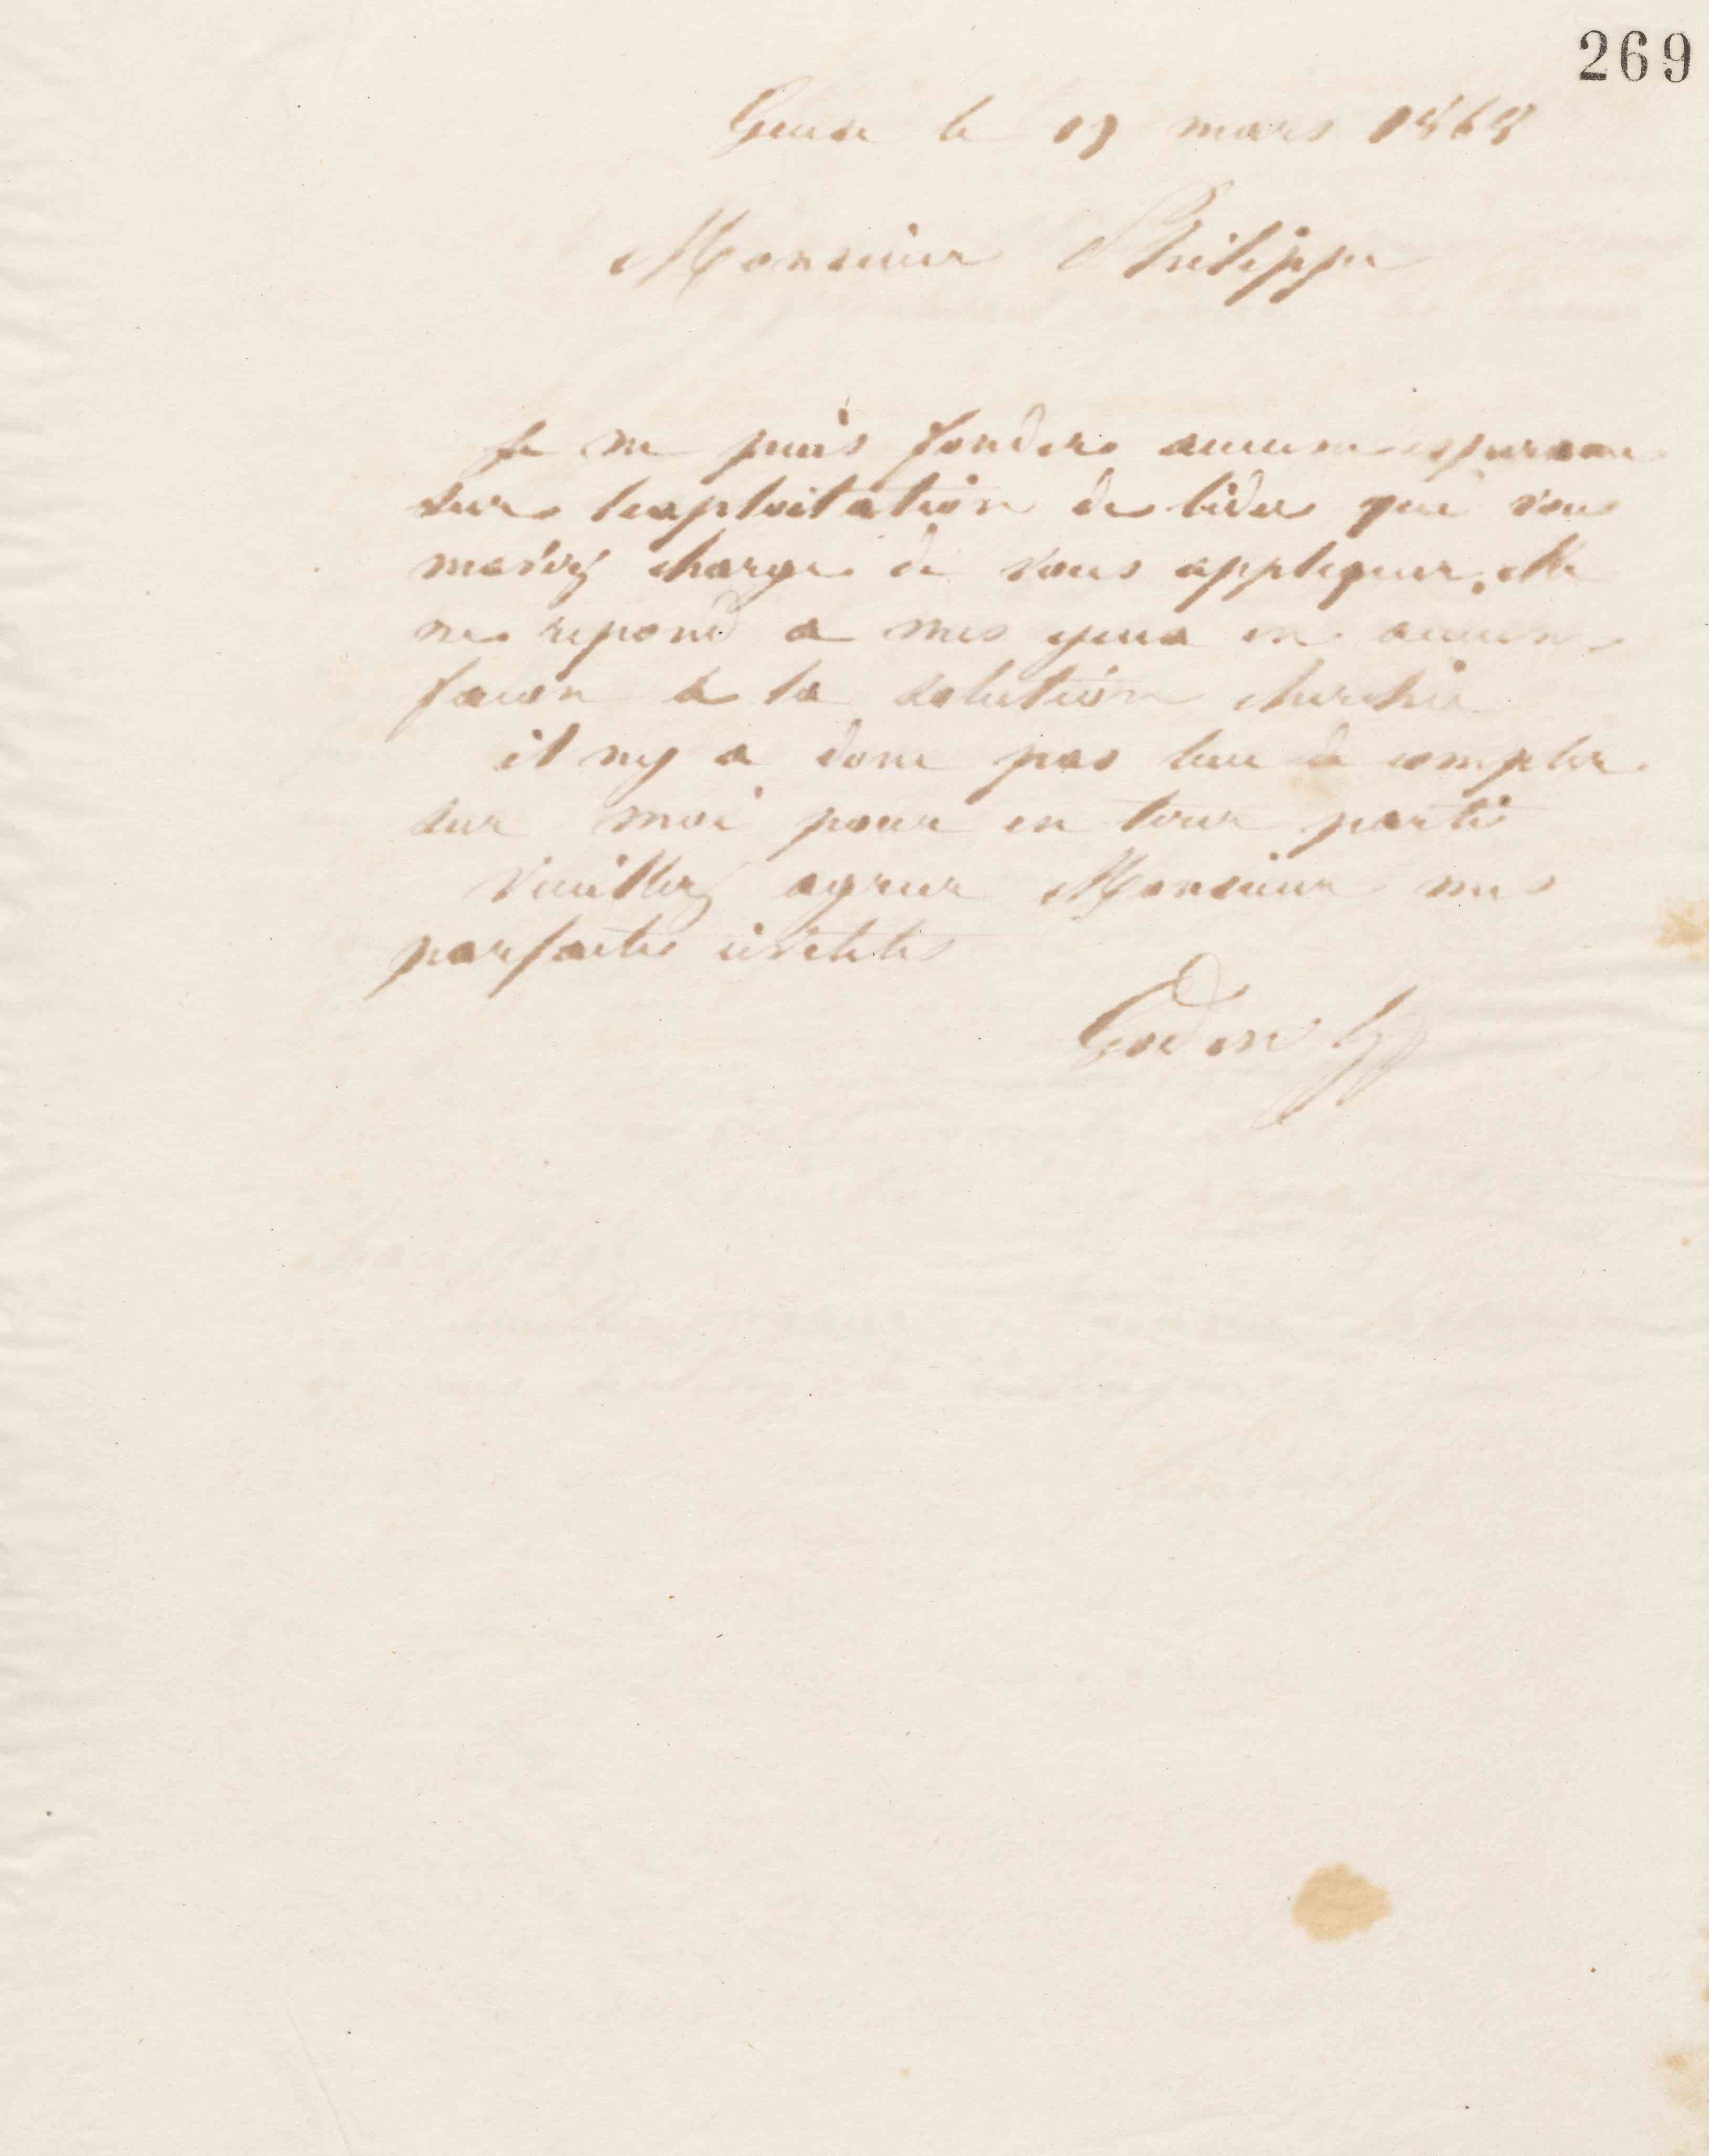 269
Guise le 19 mars 1868
Monsieur Philippe
Je ne puis fonder aucune esperance
sur lexploitation de lidee que vous
mavez charge de vous appliquer. elle
ne repond a mes yeux en aucune
facon à la solution cherchée
il ny a donc pas lieu de compter
sur moi pour en tirer parti
Veuillez agreer Monsieur mes
parfaites civilités
Godin